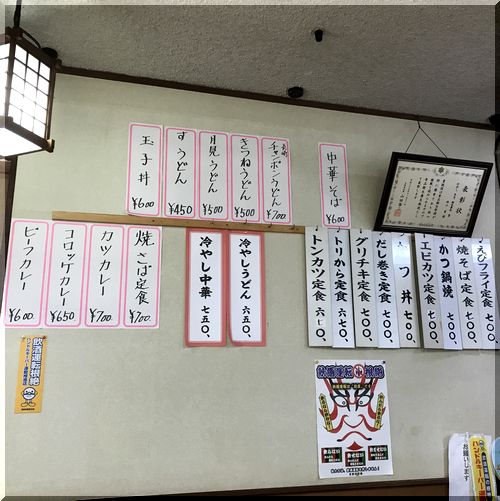 中華そば
¥600
長崎
チャンポンうどん
¥700
きつねうどん
¥500
月見うどん
¥500
すうどん
¥450
玉子丼
¥600
えびフライ定食
700、
焼そば定食
700、
かつ鍋焼
エビカツ定食
700、
カツ丼
700、
だし巻き定食
700、
グリチキ定食
700、
トリから定食
670、
トンカツ定食
670、
冷やしうどん
650、
冷やし中華
750、
焼きそば定食
¥700
カツカレー
¥700
コロッケカレー
¥650
ビーフカレー
¥600
表彰状
飲酒運転根絶
飲酒運転根絶
お願いします
ハンドルキーパー